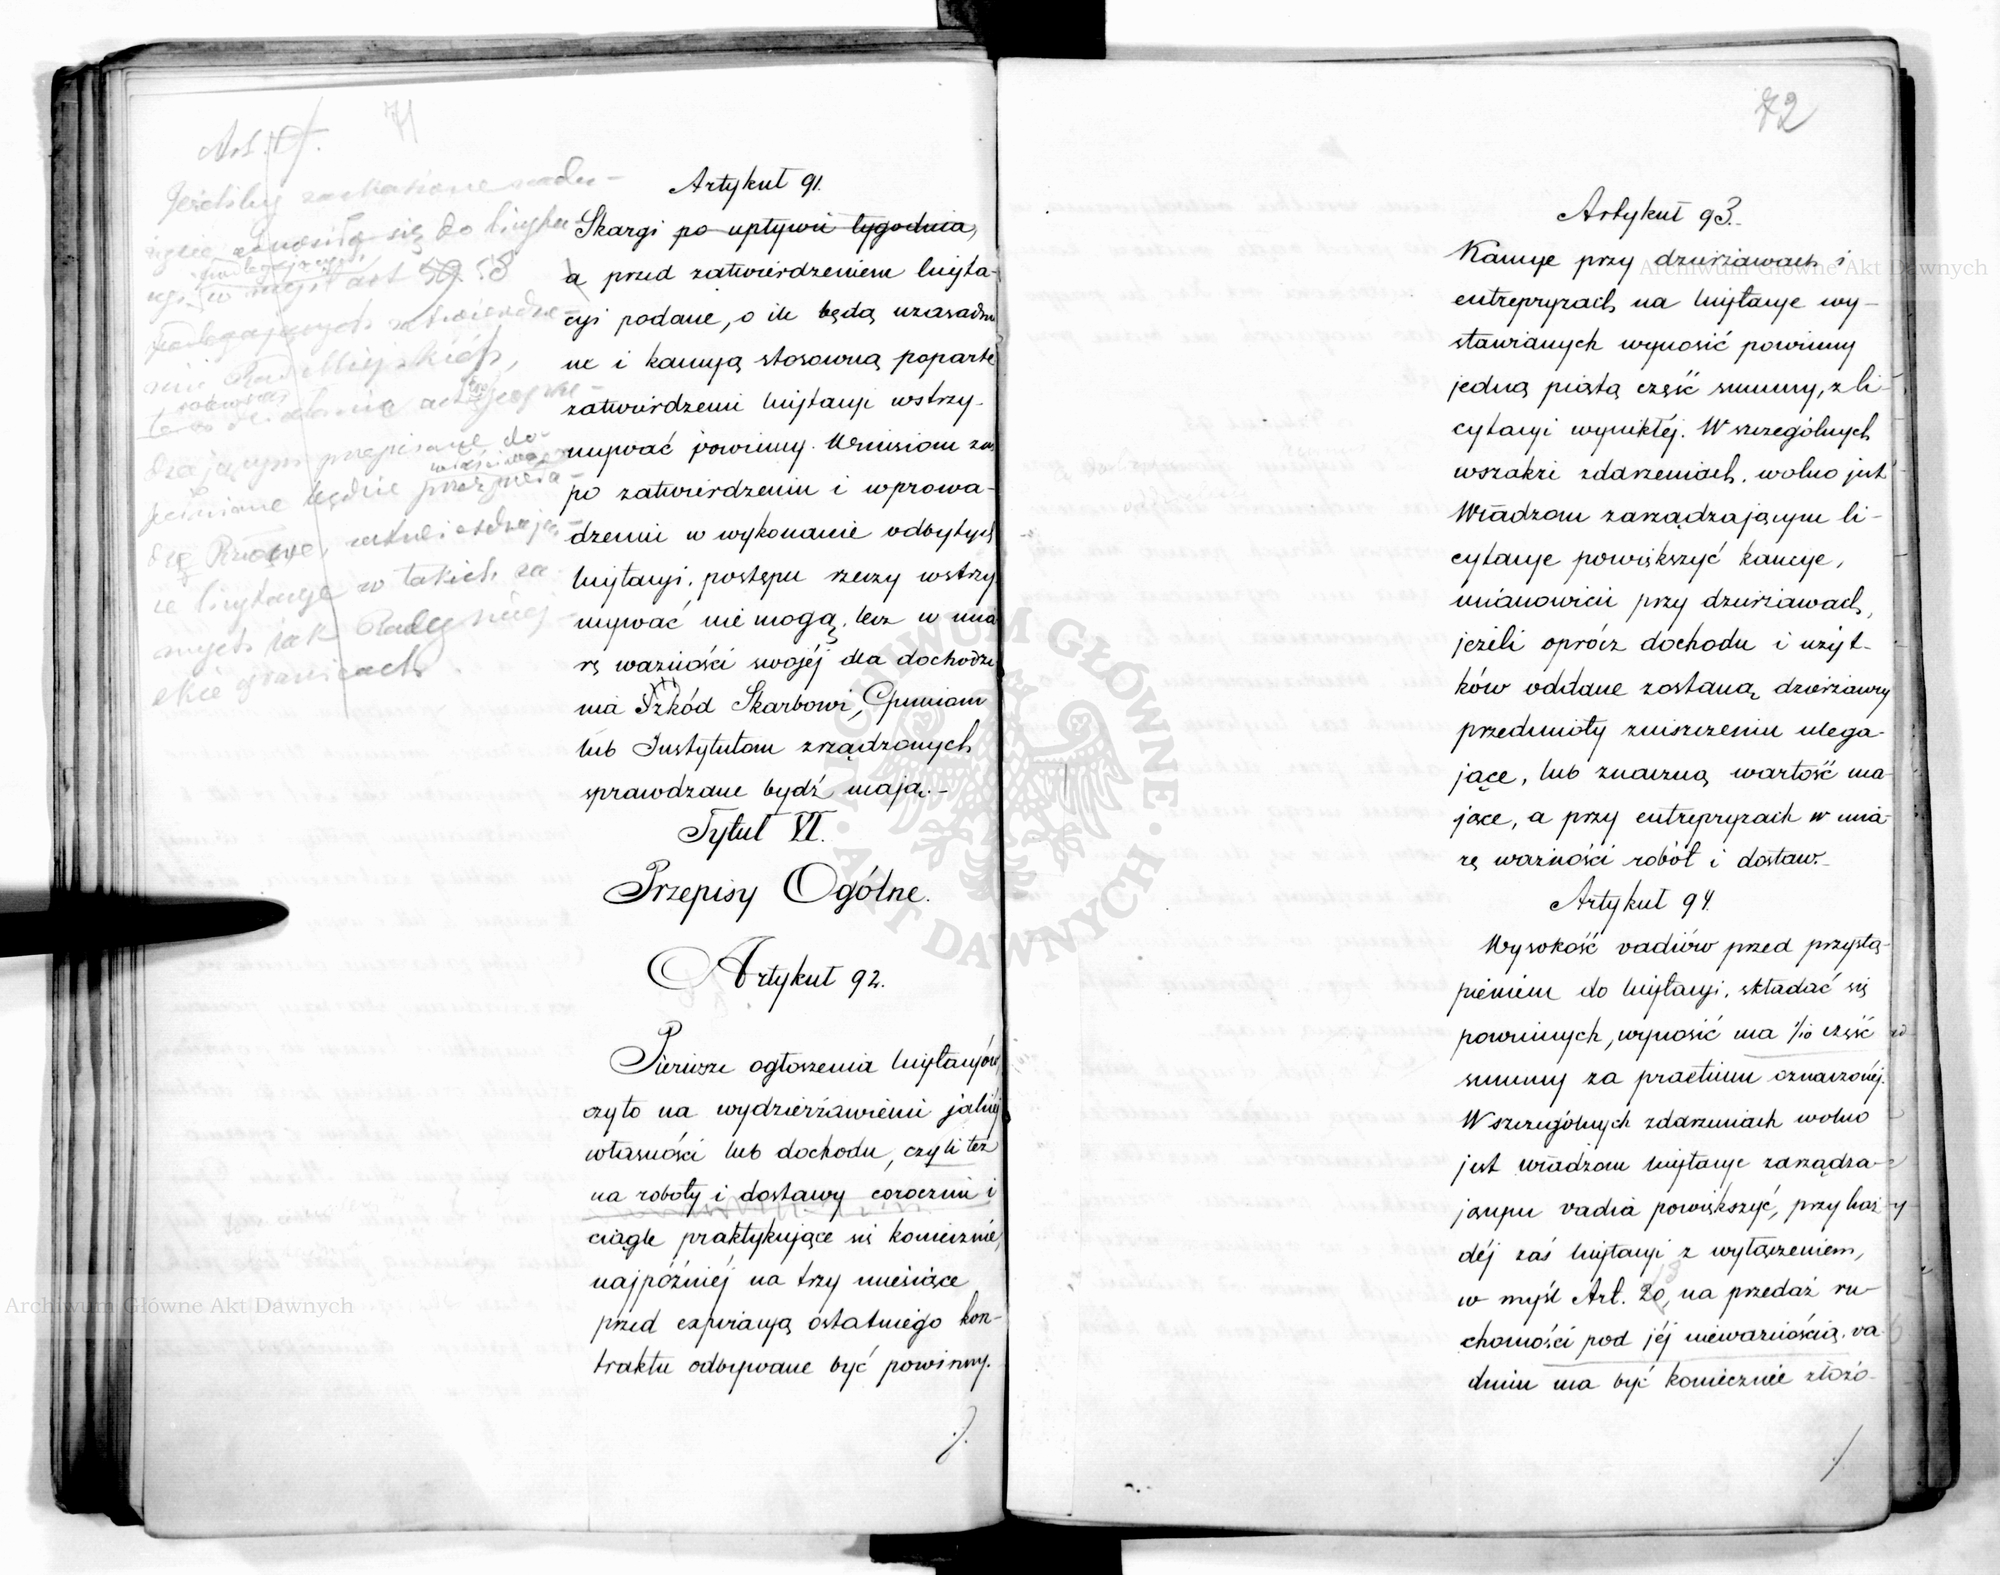 71
Art.
Jeżeliby zaskarżone nadu-
życie odnosiło się do licyta
cyi, w myśl art 58
podlegających zatwierdze-
niu Rad Miejskich,
dzającym przepisane do-
pełnione będzie przez
dzę Rządową zatwierdzają-
ce licytacye w takich sa-
mych jak Rady miej-
skie granicach
Artykuł 91.
Skargi po upływie tygodnia,
a przed zatwierdzeniem licyta-
cyi podane, o ile będą uzasadnio
ne i kaucyą stosowną poparte
zatwierdzenie licytacyi wstrzy-
mywać powinny. Wniesione zaś
po zatwierdzeniu i wprowa-
dzeniu w wykonanie odbytych
licytacyi, postępu rzeczy wstrzy
mywać nie mogą, lecz w mia
rę ważności swojéj dla dochodze
nia Szkód Skarbowi, Gminom
lub Instytutom zrządzonych
sprawdzane bydź mają.-
Tytuł VI.
Przepisy Ogólne.
Artykuł 92.
Pierwsze ogłoszenia licytacyów,
czyto na wydzierżawienie jakiéj
własności lub dochodu, czyli też
na roboty i dostawy corocznie i
ciągle praktykujące się koniecznie,
najpóźniéj na trzy miesiące
przed expiracyą ostatniego kon-
traktu odbywane być powinny.
./.
72
Artykuł 93.-
Kaucye przy dzierżawach i
entrepryzach na licytacye wy-
stawianych wynosić powinny
jedną piątą część summy, z li-
cytacyi wynikłéj. W szczególnych
wszakże zdarzeniach, wolno jest
Władzom zarządzającym li-
cytacye powiększyć kaucye,
mianowicie przy dzierżawach,
jeżeli oprócz dochodu i użyt-
ków oddane zostaną dzierżawcy
przedmioty zniszczeniu ulega-
jące, lub znaczną wartość ma-
jące, a przy entrepryzach w mia-
rę ważności robót i dostaw.-
Artykuł 94.
Wysokość vadiów przed przystą-
pieniem do licytacyi, składać się
powinnych, wynosić ma 1/10 część
summy za praetium oznaczonéj.
W szczególnych zdarzeniach wolno
jest władzom licytacye zarządza-
jącym vadia powiększyć, przy każ
déj zaś licytacyi z wyłączeniem,
w myśl Art. 20, na przedaż ru-
chomości pod jéj nieważnością, va
dium ma być koniecznie złożo-
/
ARCHIWUM GŁÓWNE · AKT DAWNYCH ·
Archiwum Główne Akt Dawnych
Archiwum Główne Akt Dawnych